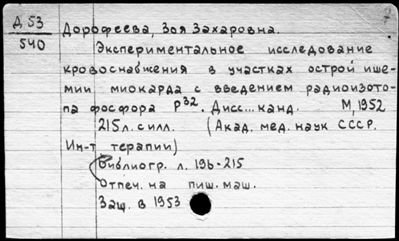 Д 53
540
Дорофеева, Зоя Захаровна.
Экспериментальное исследование
кровоснабжения в участках острой ише-
мии миокарда с введением радиоизото-
па фосфора P32. Дисс... канд. М, 1952
215 л. с илл. (Акад. мед. наук СССР.
Ин-т терапии)
Библиогр. л. 196-215
Отпеч. на пиш. маш.
Защ. в 1953